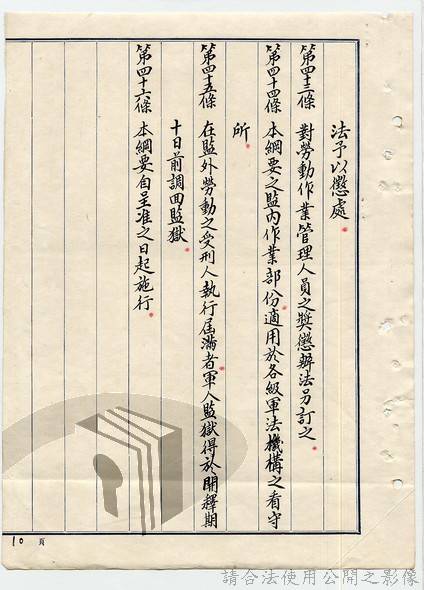 法予以懲處。
第四十三條 對勞動作業管理人員之獎懲辦法另訂之。
第四十四條 本綱要之監內作業部份適用於各級軍法機構之看守
所。
第四十五條 在監外勞動之受刑人執行屆滿者軍人監獄得於開釋期
十日前調回監獄。
第四十六條 本綱要自呈准之日起施行。
10 頁
請合法使用公開之影像